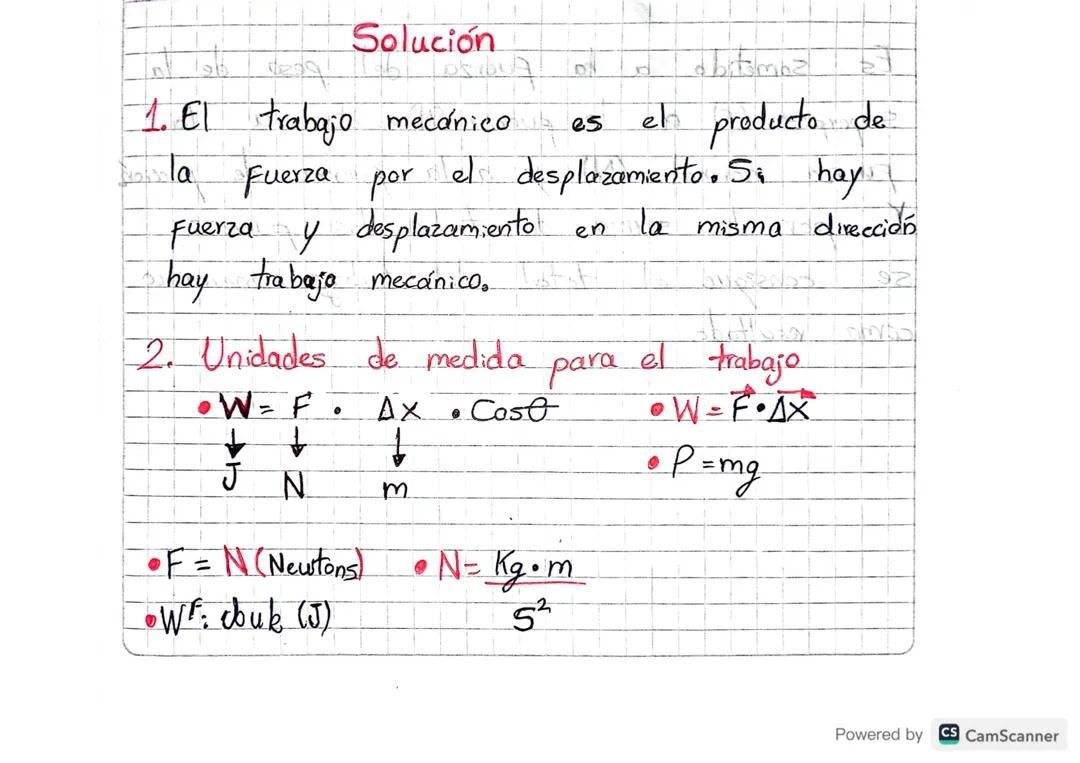 Solución
1. El trabajo mecánico es el producto de
la Fuerza por el desplazamiento. Si hay
Fuerza y desplazamiento en la misma dirección
hay trabajo mecánico.
2. Unidades de medida para el trabajo
• W = F . Δx . Cosθ
• W = F⃗ • Δx⃗
J N m
• P = mg
• F = N (Newtons)
• N = Kg • m
s²
• Wᶠ: (J)
Powered by CS CamScanner